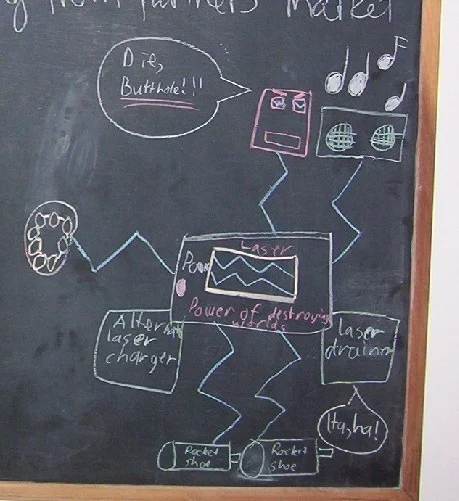 from farmers market
Die,
Butthole!!!
F
Laser
Power of destroying
worlds
laser
charger
Laser
drainer
Ha, ha!
Rocket
shoe
Rocket
shoe